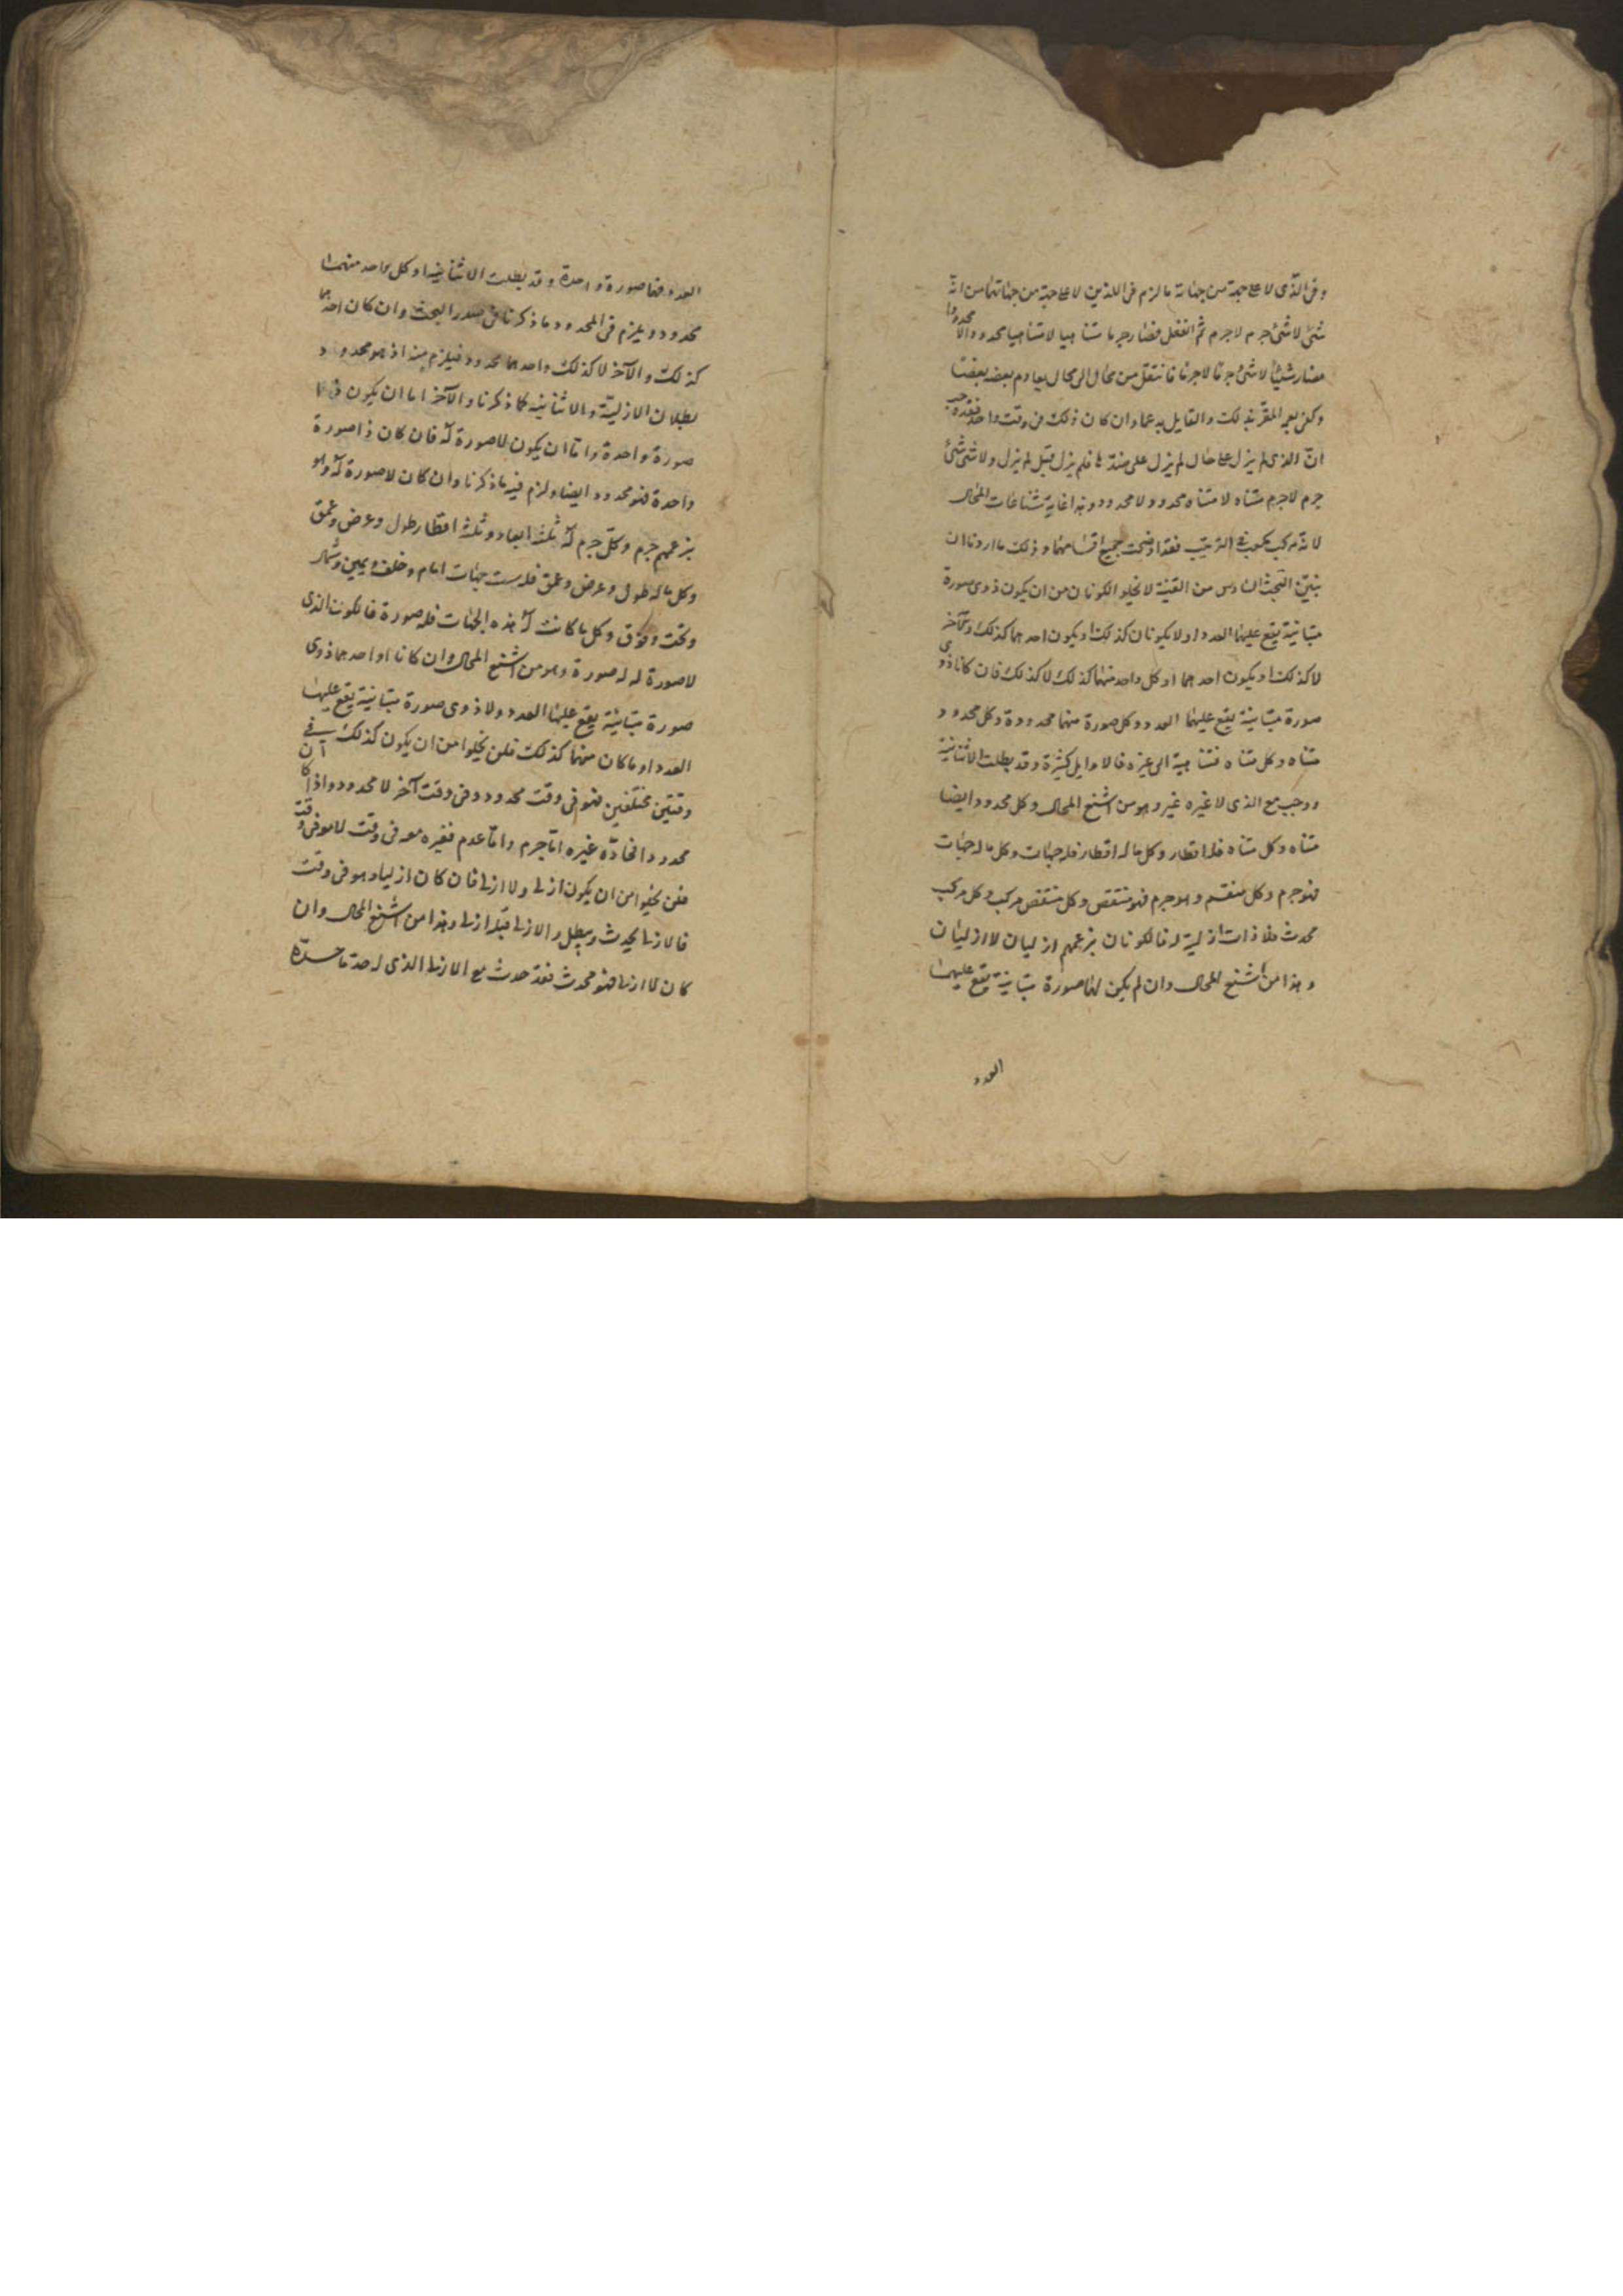 وفى الذى لا على جهة من جهاته ما لزم فى اللذين لا على جهة من جهاتهما من انه
شئ لا شئ جرم لا جرم ثم انفعل فصار جرما متناهيا لا متناهيا محدودا لا محدودا
فصار شيئا لا شئ جرما لا جرما فانتقل من محال الى محال يعادم بعضه بعضا
وكفى بعمى المقر بذلك والقايل به عما وان كان ذلك فى وقت واحد فقد وجب
ان الذى لم يزل على حال لم يزل على ضدها فلم يزل قبل لم يزل ولا شئ شئ
جرم لا جرم متناه لا متناه محدود ولا محدود وهذا غاية شناعات المحال
لانه مركب فى الترتيب فقد اوضحت جميع اقسامها وذلك ما اردنا ان
نبين البحث السادس من القنية لا يخلو الكونان من ان يكون ذوى صورة
متباينة يقع عليهما العدد او لا يكونان كذلك او يكون احدهما كذلك والآخر
لا كذلك او يكون احدهما او كل واحد منهما كذلك لا كذلك فان كانا ذوى
صورة متباينة يقع عليهما العدد وكل صورة منهما محدودة وكل محدود
متناه وكل متناه فمتناهية الى غيره فالاوايل كثيرة وقد بطلت الاثنانية
ووجب مع الذى لا غيره غير وهو من اشنع المحال وكل محدود ايضا
متناه وكل متناه فله اقطار وكل ما له اقطار فله جهات وكل ما له جهات
فهو جرم وكل منقسم وهو جرم فهو منتقص وكل منتقص مركب وكل مركب
محدث فلا ذات ازلية له فالكونان بزعمهم ازليان لا ازليان
وهذا من اشنع المحال وان لم يكن لهما صورة متباينة يقع عليهما
العدد
العدد فهما صورة واحدة وقد بطلت الاثنانية او كل واحد منهما
محدود ويلزم فى المحدود ما ذكرنا فى صدر البحث وان كان احدهما
كذلك والآخر لا كذلك واحدهما محدود فيلزم منه اذ هو محدود
بطلان الازلية والاثنانية كما ذكرنا والآخر اما ان يكون ذا
صورة واحدة واما ان يكون لا صورة له فان كان ذا صورة
واحدة فهو محدود ايضا ولزم فيه ما ذكرنا وان كان لا صورة له وهو
بزعمهم جرم وكل جرم له ثلثة ابعاد وثلثة اقطار طول وعرض وعمق
وكل ما له طول وعرض وعمق فله ست جهات امام وخلف ويمين وشمال
وتحت وفوق وكل ما كانت له هذه الجهات فله صورة فالكون الذى
لا صورة له له صورة وهو من اشنع المحال وان كانا او احدهما ذوى
صورة متباينة يقع عليهما العدد ولا ذوى صورة متباينة يقع عليهما
العدد او ما كان منهما كذلك فلن يخلوا من ان يكون كذلك فى
وقتين مختلفين فهو فى وقت محدود وفى وقت آخر لا محدود واذا كان
محدودا فحاده غيره اما جرم واما عدم فغيره معه فى وقت لا هو فى وقت
فلن يخلوا من ان يكون ازليا ولا ازليا فان كان ازليا وهو فى وقت
فالازلى يحدث ويبطل والازلى قبله ازلى وهذا من اشنع المحال وان
كان لا ازليا فهو محدث فقد حدث مع الازلى الذى له حد ما حده